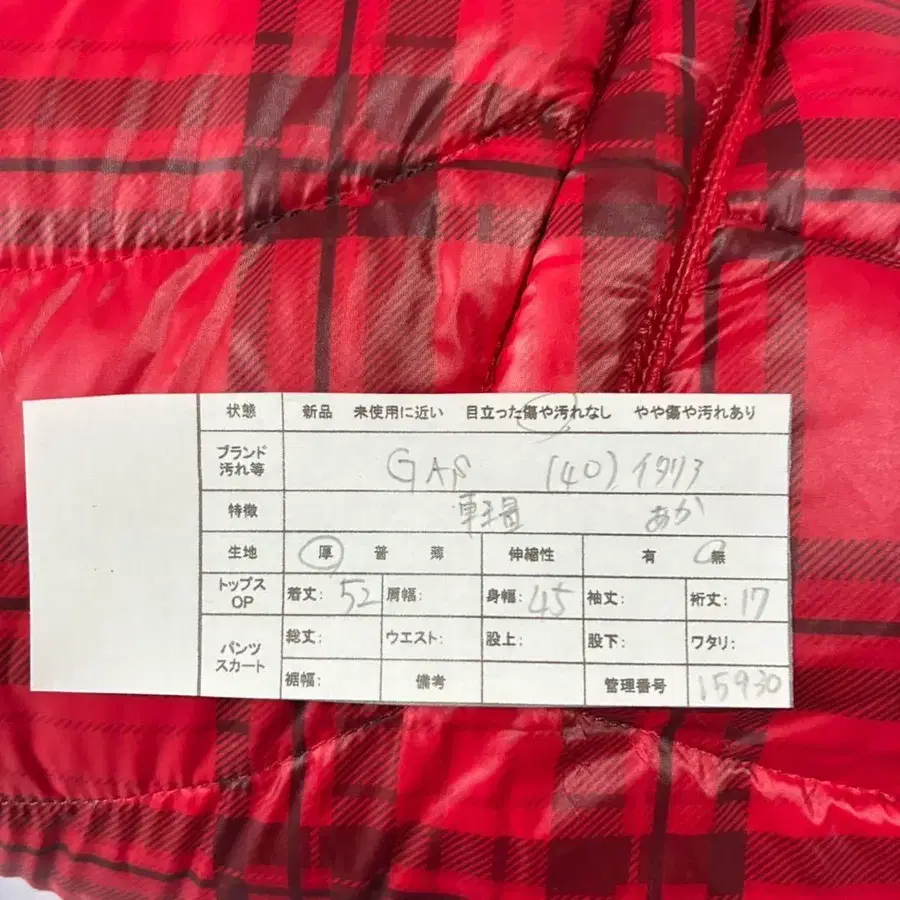 状態 新品 未使用に近い 目立った傷や汚れなし やや傷や汚れあり
ブランド
汚れ等 GAS (40) イタリア
特徴 軽量 あか
生地 厚 普 薄 伸縮性 有 無
トップス
OP 着丈: 52 肩幅: 身幅: 45 袖丈: 裄丈: 17
パンツ
スカート 総丈: ウエスト: 股上: 股下: ワタリ:
裾幅: 備考 管理番号 15930